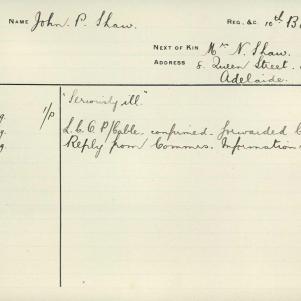 NAME John P. Shaw. REG. &C. 10th B
NEXT OF KIN Mrs N. Shaw.
ADDRESS 8. Queen Street.
Adelaide.
"Seriously ill."
g. 1/P L.C.O. P/Cable, confirmed. forwarded C
g. Reply from Commrs. Information
g.